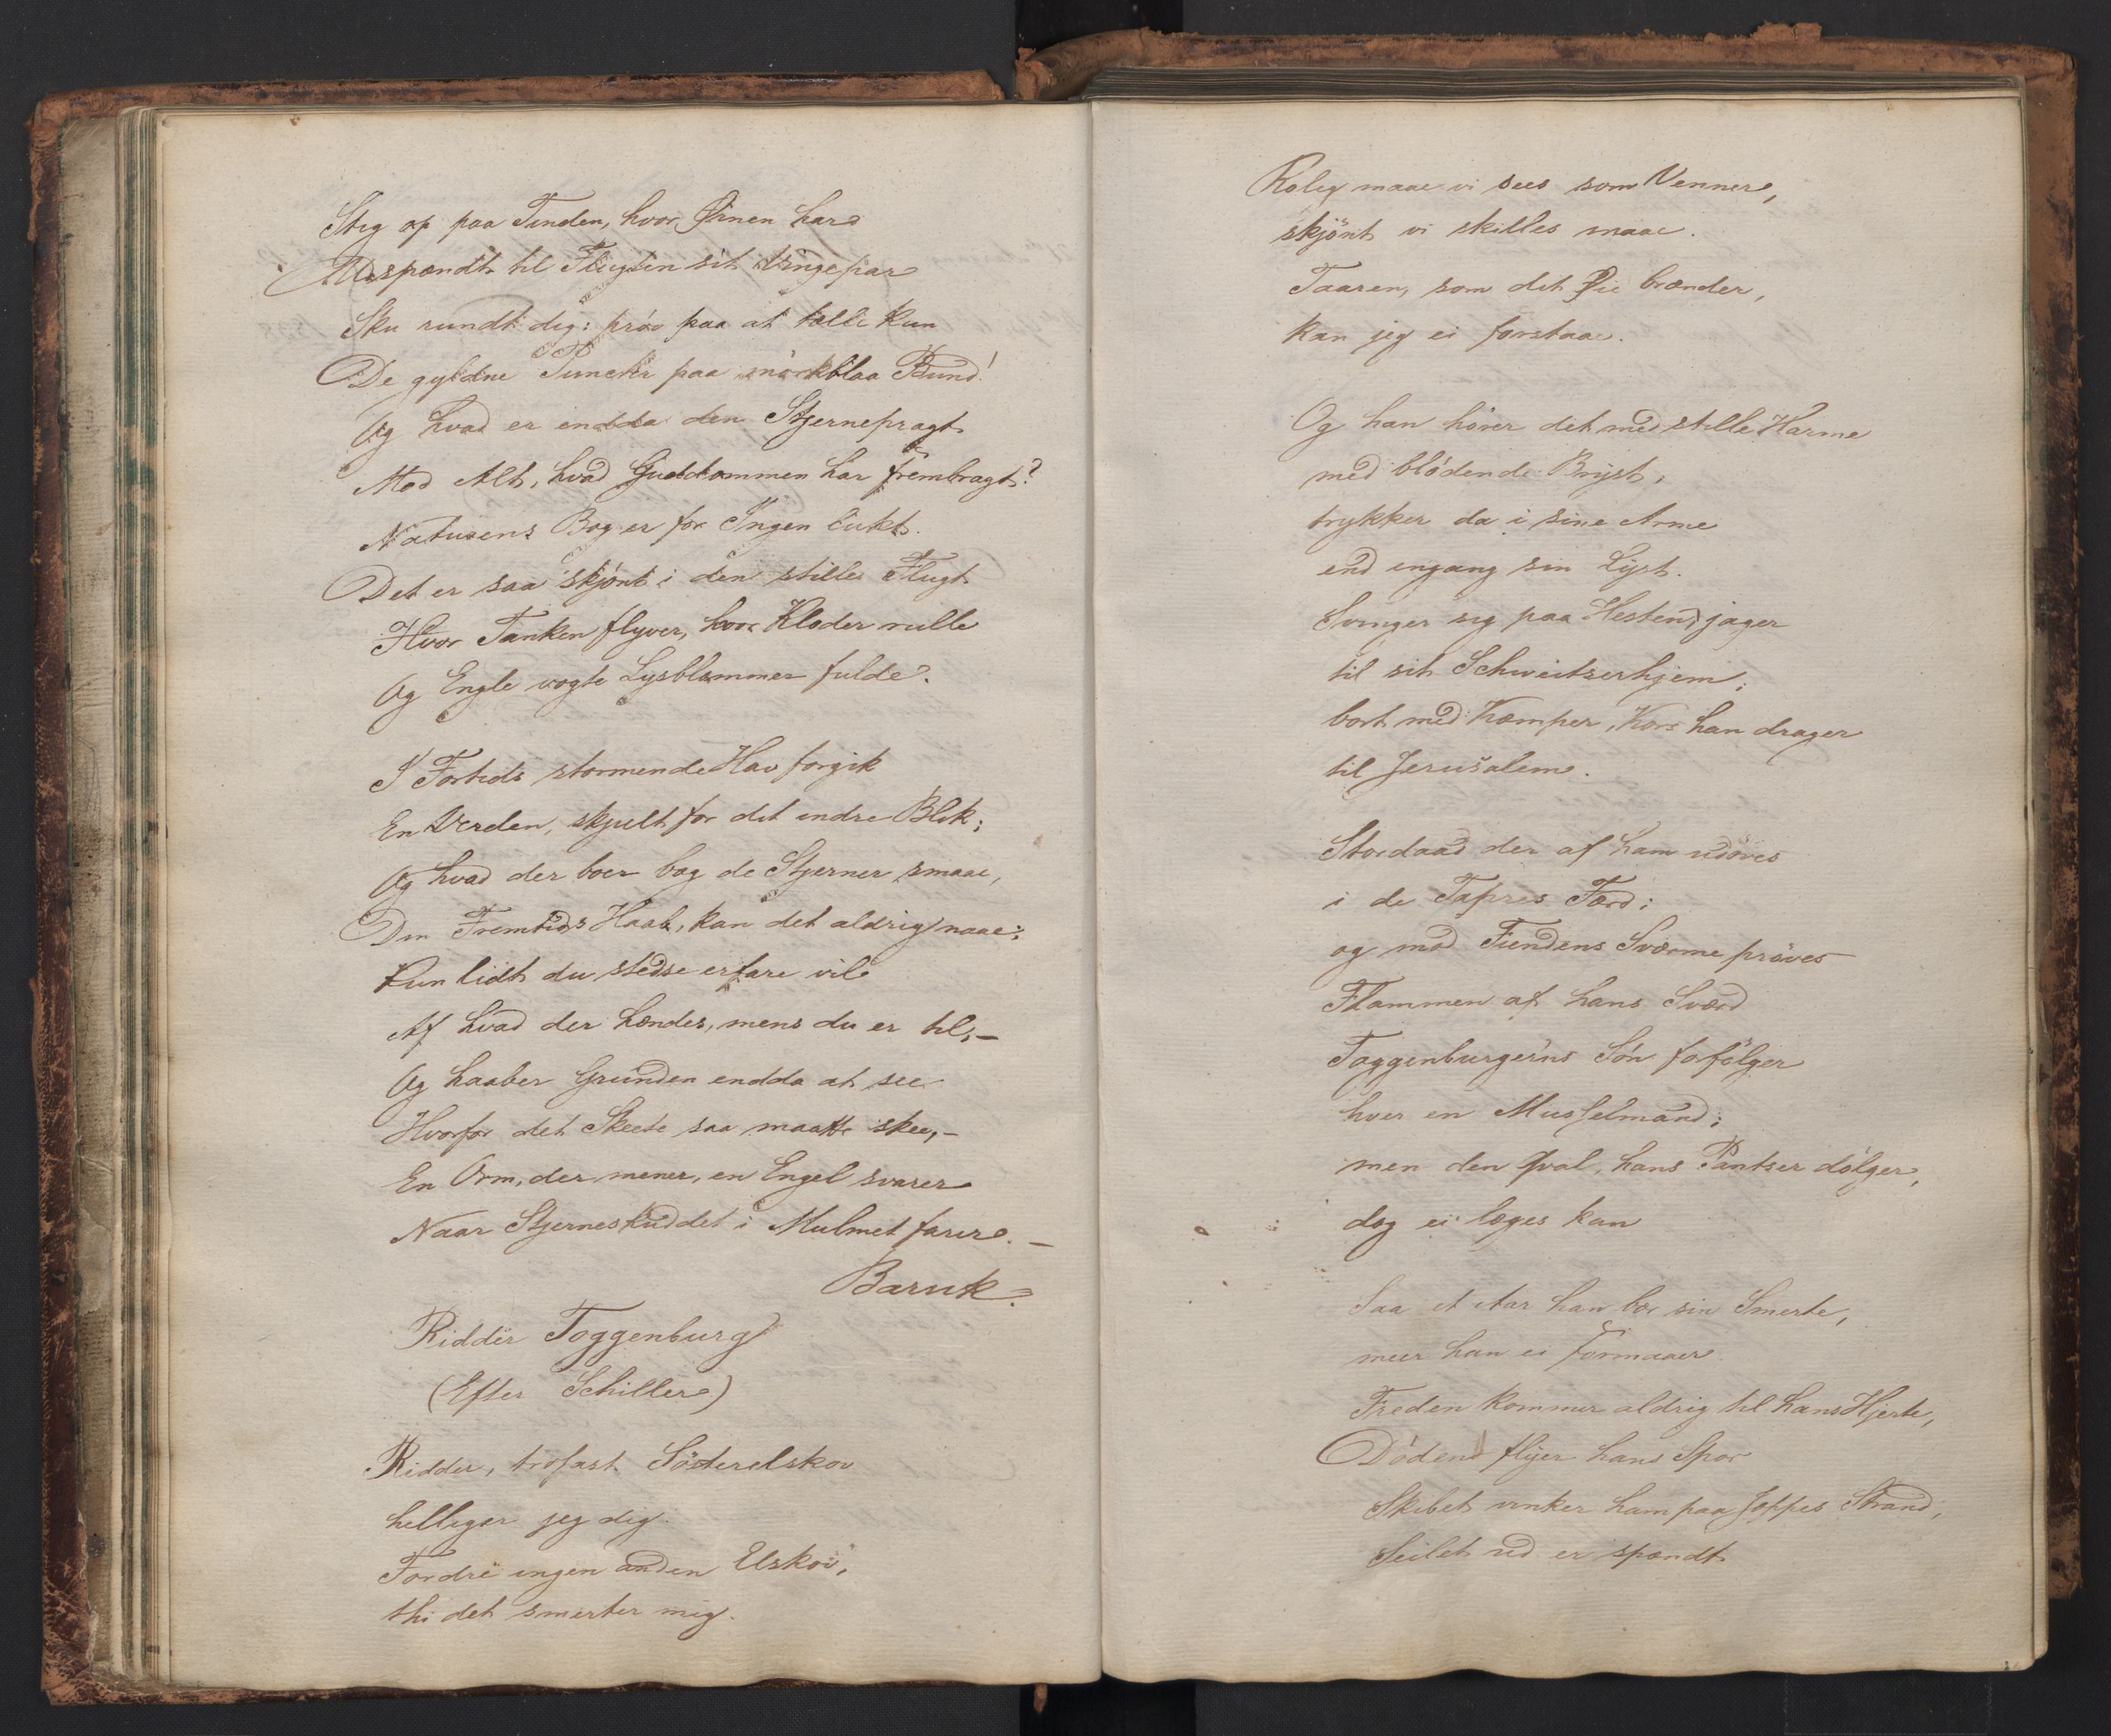 Stig op paa Tinden, hvor Ørnen har
Udspændt til Flugten sit Vingepar
Sku rundt dig: prøv paa at tælle kun
De gyldne Puncter paa mörkblaa Bund!
Og hvad er endda den Stjernepragt
Mod Alt, hvad Guddommen har frembragt?
Naturens Bog er for Ingen lukt.
Det er saa skjönt i den stille Flugt
Hvor Tanken flyver, hvor Kloder rulle
Og Engle vogte Lysblommer fulde.
I Fortids stormende Hav forgik
En Verden, skjult for dit indre Blik;
Og hvad der boer bag de Stjerner smaae,
Din Fremtids Haab, kan det aldrig naae;
Kun lidt du stedse erfare vil
Af hvad der hændes, mens du er til, –
Og haaber Grunden endda at see
Hvorfor det Skeete saa maatte skee, –
En Orm, der mener, en Engel svarer
Naar Stjerneskuddet i Mulmet farer. –
Baruk.
Ridder Toggenburg
(Efter Schiller)
Ridder, trofast Sösterelskov
helliger jeg dig.
Fordre ingen anden Elskov,
thi det smerter mig.
Rolig maae vi sees som Venner,
skjönt vi skilles maae.
Taaren, som dit Øie brænder,
kan jeg ei forstaae.
Og han hörer det med stille Harme
med blödende Bryst,
trykker da i sine Arme
end engang sin Lyst.
Svinger sig paa Hesten, jager
til sit Schweitserhjem;
bort med Kæmper, Kors han drager
til Jerusalem.
Stordaad der af ham udöves
i de Tapres Færd;
og mod Fiendens Sværme pröves
Flammen af hans Sværd
Toggenburgerns Sön forfölger
hver en Musselmand;
men den Qval, hans Pantser dölger,
dog ei læges kan
Saa et Aar han bær sin Smerte,
meer han ei formaaer.
Freden kommer aldrig til hans Hjerte,
Döden flyer hans Spor
Skibet vinker ham paa Joppes Strand,
Seilet ud er spændt